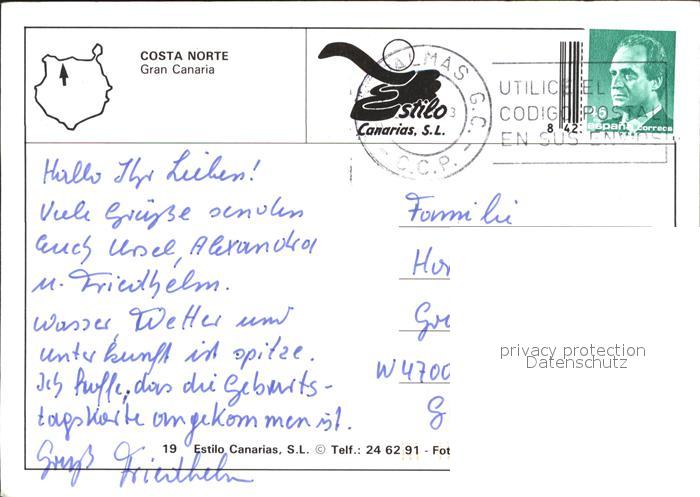 COSTA NORTE
Gran Canaria
Estilo
Canarias, S.L.
ALMAS G.C. - C.C.P. -
UTILICE EL
CODIGO POSTAL
EN SUS ENVIOS
8 42
España correos
Hallo Ihr Lieben!
Viele Grüße senden
Euch Ursel, Alexandra
u. Friedhelm.
Wasser, Wetter und
Unterkunft ist spitze.
Ich hoffe, das die Geburts-
tagskarte angekommen ist.
Gruß Friedhelm
Familie
Hor
Gre
W 4700
G
privacy protection
Datenschutz
19 Estilo Canarias, S.L. © Telf.: 24 62 91 - Fot